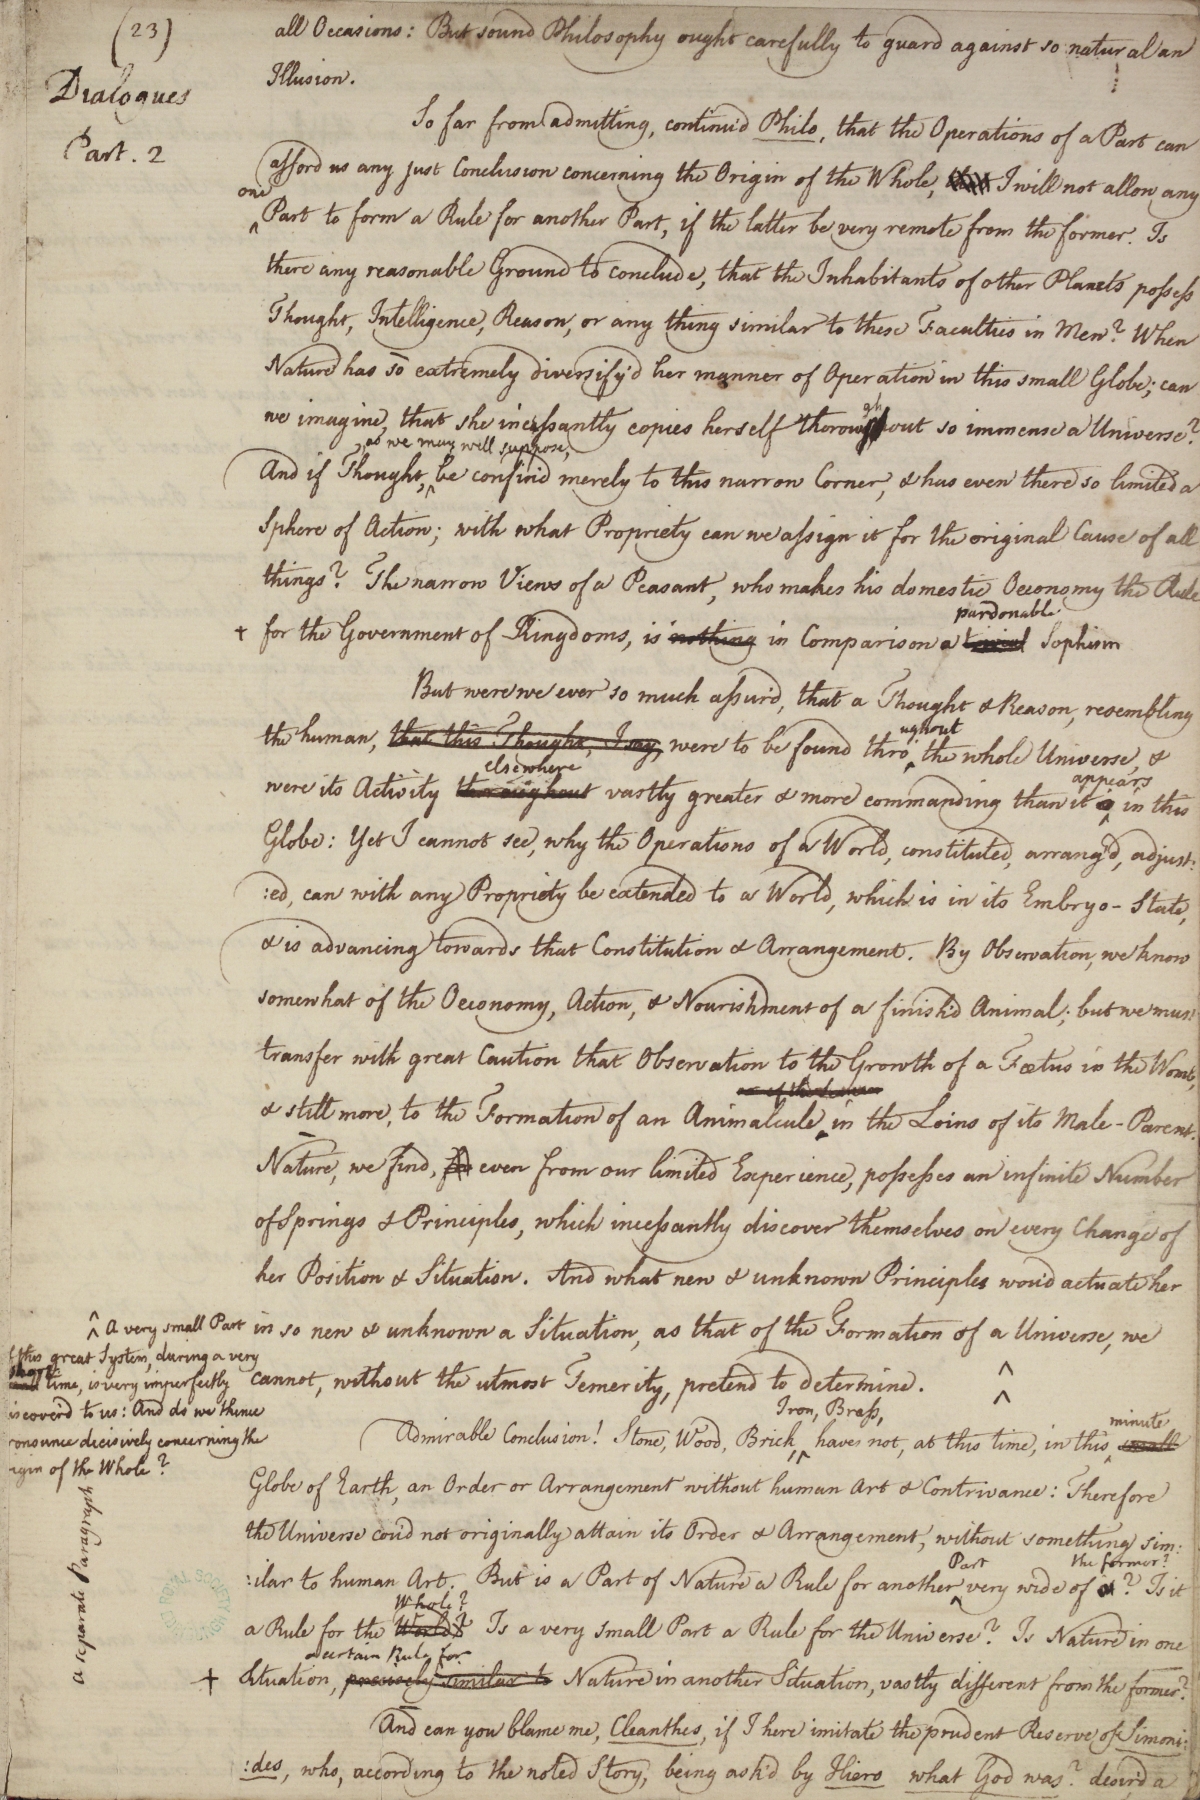 (23)
Dialogues
Part. 2
all Occasions: But sound Philosophy ought carefully to guard against so natural an
Illusion.
So far from admitting, continu'd Philo, that the Operations of a Part can
afford us any just Conclusion concerning the Origin of the Whole, I will not allow any
one
^ Part to form a Rule for another Part, if the latter be very remote from the former. Is
there any reasonable Ground to conclude, that the Inhabitants of other Planets possess
Thought, Intelligence, Reason, or any thing similar to these Faculties in Men? When
Nature has so extremely diversify'd her manner of Operation in this small Globe; can
we imagine, that she incessantly copies herself thoroughout so immense a Universe?
, as we may well suppose,
And if Thought, ^ be confin'd merely to this narrow Corner, & has even there so limited a
Sphere of Action; with what Propriety can we assign it for the original Cause of all
things? The narrow Views of a Peasant, who makes his domestic Oeconomy the Rule
pardonable
+ for the Government of Kingdoms, is nothing in Comparison a trivial Sophism
But were we ever so much assur'd, that a Thought & Reason, resembling
ughout
the human, that this Thought, I say, were to be found thro ^ the whole Universe, &
elsewhere appears
were its Activity thoroughout vastly greater & more commanding than it ^ in this
Globe: Yet I cannot see, why the Operations of a World, constituted, arrang'd, adjust:
:ed, can with any Propriety be extended to a World, which is in its Embryo-State,
& is advancing towards that Constitution & Arrangement. By Observation, we know
somewhat of the Oeconomy, Action, & Nourishment of a finish'd Animal; but we must
transfer with great Caution that Observation to the Growth of a Fœtus in the Womb,
& still more, to the Formation of an Animalcule in the Loins of its Male-Parent.
Nature, we find, even from our limited Experience, possesses an infinite Number
of Springs & Principles, which incessantly discover themselves on every Change of
her Position & Situation. And what new & unknown Principles wou'd actuate her
in so new & unknown a Situation, as that of the Formation of a Universe, we
cannot, without the utmost Temerity, pretend to determine.
^ A very small Part
of this great System, during a very
short time, is very imperfectly
discover'd to us: And do we thence
pronounce decisively concerning the
Origin of the Whole?
a separate Paragraph
Iron, Brass, minute
Admirable Conclusion! Stone, Wood, Brick, ^ have not, at this time, in this ^ small
Globe of Earth, an Order or Arrangement without human Art & Contrivance: Therefore
the Universe cou'd not originally attain its Order & Arrangement, without something sim:
Part the former?
:ilar to human Art. But is a Part of Nature a Rule for another ^ very wide of ? Is it
Whole?
a Rule for the World? Is a very small Part a Rule for the Universe? Is Nature in one
a certain Rule for
+ Situation, precisely similar to Nature in another Situation, vastly different from the former?
And can you blame me, Cleanthes, if I here imitate the prudent Reserve of Simoni:
:des, who, according to the noted Story, being ask'd by Hiero what God was? desir'd a